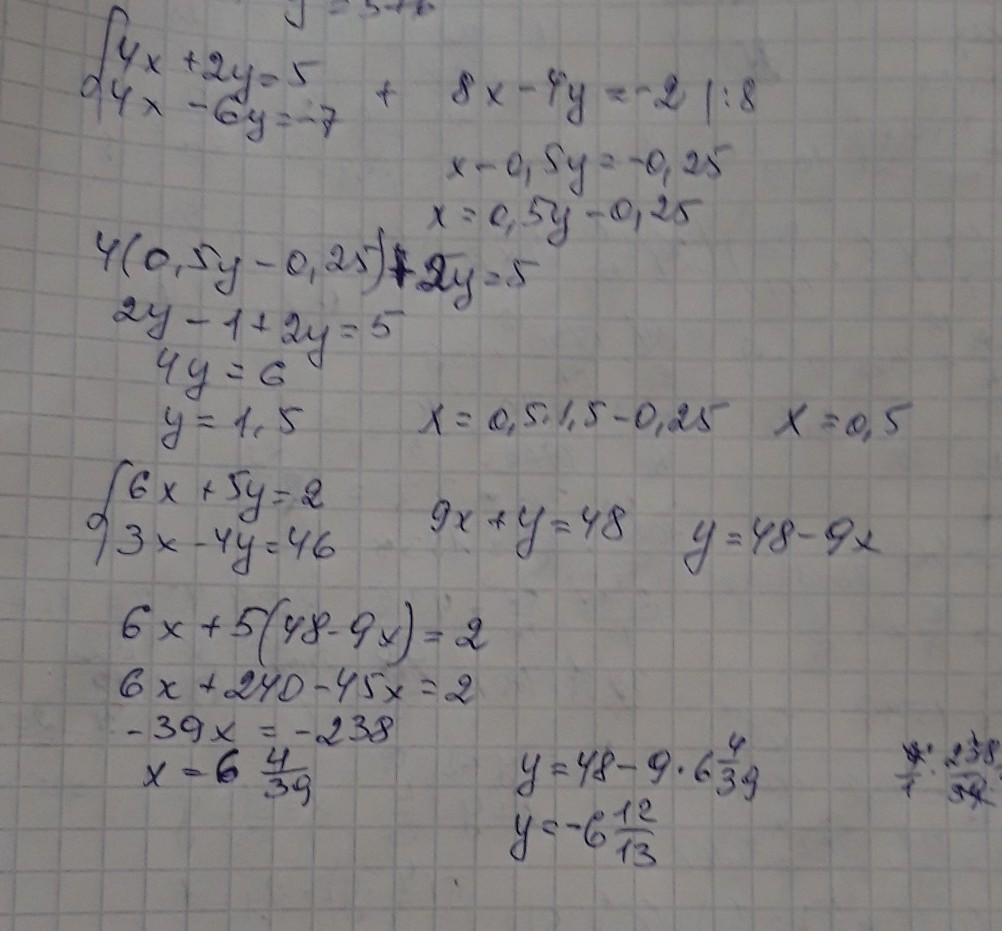 4x + 2y = 5
4x - 6y = -7 + 8x - 4y = -2 |:8
x - 0,5y = -0,25
x = 0,5y - 0,25
4(0,5y - 0,25) + 2y = 5
2y - 1 + 2y = 5
4y = 6
y = 1,5 x = 0,5·1,5 - 0,25 x = 0,5
6x + 5y = 2
3x - 4y = 46 9x + y = 48 y = 48 - 9x
6x + 5(48 - 9x) = 2
6x + 240 - 45x = 2
-39x = -238
x = 6 4/39 y = 48 - 9 · 6 4/39
y = -6 12/13